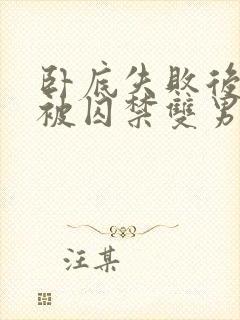 卧底失敗後
被囚禁雙男
汪某